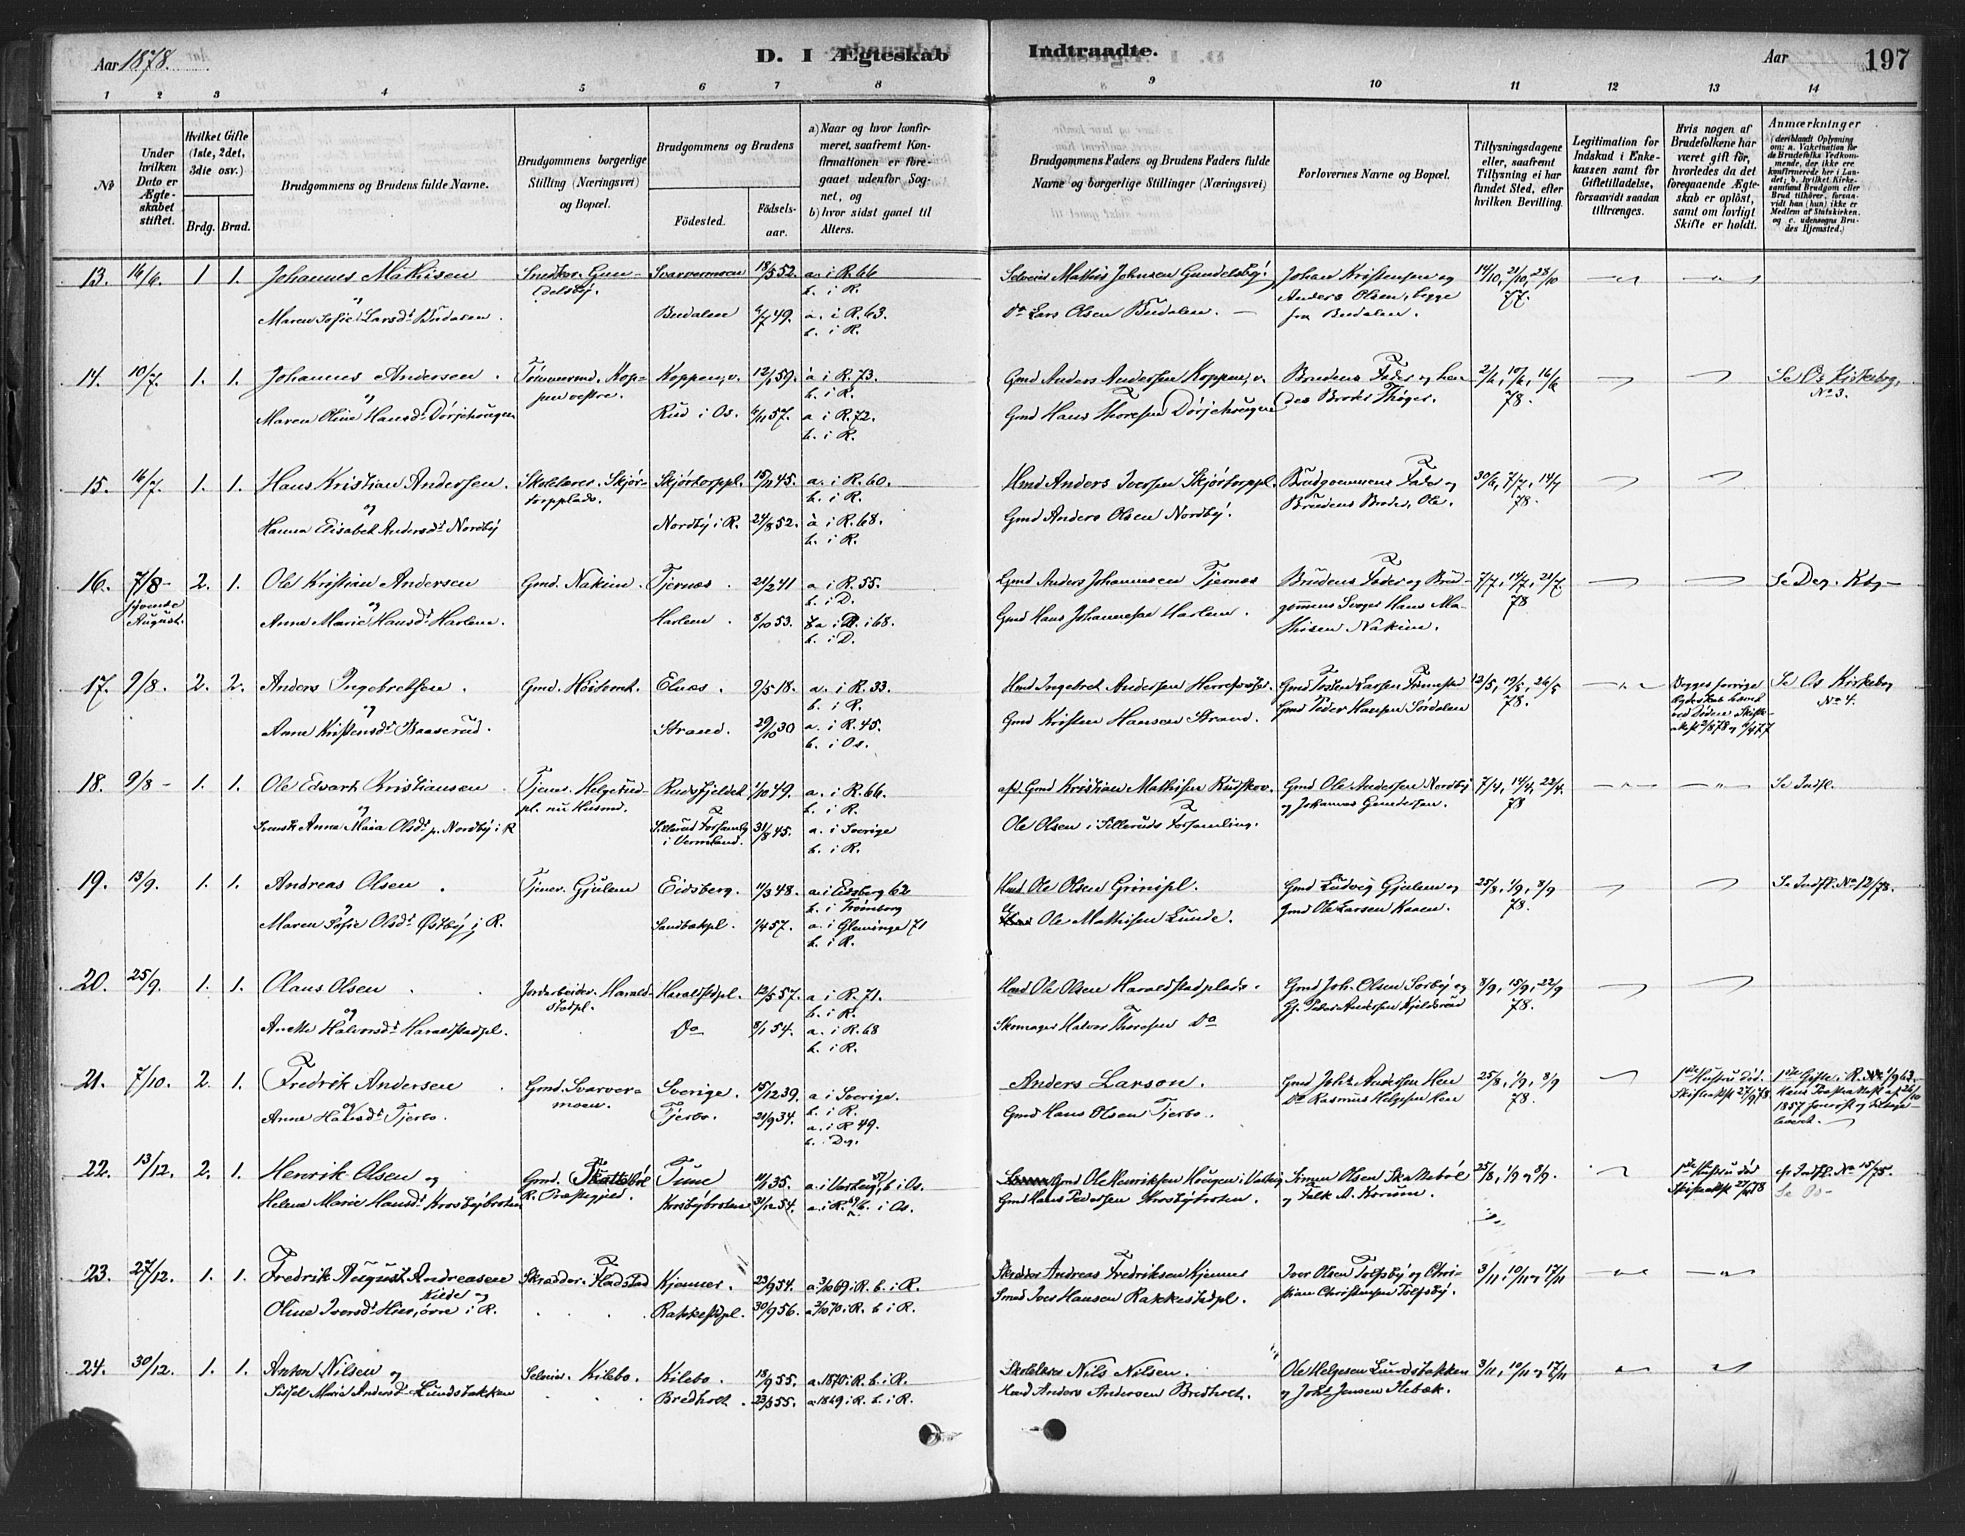 Aar 1878.
D. I Ægteskab Indtraadte.
Aar 197
1 2 3 4 5 6 7 8 9 10 11 12 13 14
No
Under hvilken Dato er Ægteskabet stiftet.
Hvilket Gifte (1ste, 2det, 3die osv.)
Brdg. Brud.
Brudgommens og Brudens fulde Navne.
Brudgommens borgerlige Stilling (Næringsvei) og Bopæl.
Brudgommens og Brudens
Fødested.
Fødselsaar.
a) Naar og hvor konfirmeret, saafremt Konfirmationen er foregaaet udenfor Sognet, og
b) hvor sidst gaaet til Alters.
Brudgommens Faders og Brudens Faders fulde Navne og borgerlige Stillinger (Næringsvei)
Forlovernes Navne og Bopæl.
Tillysningsdagene eller, saafremt Tillysning ei har fundet Sted, efter hvilken Bevilling.
Legitimation for Indskud i Enkekassen samt for Giftetilladelse, forsaavidt saadan tiltrænges.
Hvis nogen af Brudefolkene har været gift før, hvorledes da det foregaaende Ægteskab er opløst, samt om lovligt Skifte er holdt.
Anmærkninger
(deriblandt Oplysning om: a. Vakcination for de Brudefolks Vedkommende, der ikke ere konfirmerede her i Landet; b. hvilket Kirkesamfund Brudgom eller Brud tilhører, forsaavidt han (hun) ikke er Medlem af Statskirken, og c. udensogns Brudes Hjemsted.)
13. 16/6. 1. 1. Johannes Mathisen Snedker. Gundelsby. Svarvermoen 18/5 52. a. i R. 66 b. i R. Selveier Mathis Johnsen Gundelsby. Johan Kristensen og 14/10, 21/10, 28/10 77.
og
Maren Sofie Larsdr Budalen. Budalen 6/7 49. a. i R. 63. b. i R. Do Lars Olsen Budalen. Anders Olsen, begge fra Budalen.
14. 10/7. 1. 1. Johannes Andersen. Tømmermd. Koppen vestre. Koppen, v. 12/1 59. a i R. 73. b. i R. Gmd Anders Andersen Koppen, v. Brudens Fader og hendes Broder Thöger. 2/6, 10/6, 16/6 78. Se Os Kirkebog, No 3.
og
Maren Oline Hansdr Dörjehougen Rud i Os. 6/11 57. a i R. 72. b. i R. Gmd Hans Thoresen Dörjehougen
15. 16/7. 1. 1. Hans Kristian Andersen. Skolelærer. Skjørtorpplads. Skjørtorppl. 15/11 45. a. i R. 60. b. i R. Hmd Anders Iversen Skjørtorppl. Brudgommens Fader og Brudens Broder, Ole. 30/6, 7/7, 14/7 78.
og
Hanna Elisabet Andersdr Nordby Nordby i R. 24/8 52. a i R. 68. b. i R. Gmd Anders Olsen Nordby.
16. 7/8 – syvende August. 2. 1. Ole Kristian Andersen Gmd. Nakim. Tjernæs. 21/2 41 a. i R. 55. b. i D. Gmd Anders Johannesen Tjernæs Brudens Fader og Brudgommens Svoger Hans Mathisen Nakim. 7/7, 14/7, 21/7 78 Se Deg. Kbg –
og
Anne Marie Hansdr Harlem. Harlem. 8/10 53. a i R. 68. b. i D. Gmd Hans Johannesen Harlem.
17. 9/8. 2. 2. Anders Ingebretsen. Gmd. Höitomt. Elnæs. 9/5 18. a. i R. 33. b. i R. Hmd Ingebret Andersen Gmd Torsten Larsen 12/5, 19/5, 26/5 78. Begges forrige Ægteskab hævet ved Døden. Se Os Kirkebog No 4.
og
Anne Kristensdr Baaserud. Strand. 29/10 30 a. i R. 45. b. i Os. Gmd Kristen Hansen Strand. Gmd Peder Hansen Sørdalen
18. 9/8 – 1. 1. Ole Edvart Kristiansen Tjener. Helgerudpl. nu Husmd. Rudsfjeldet 1/10 49. a. i R. 66. b. i R. afd. Gmd Kristian Mathisen Rudskov. Gmd Ole Andersen Nordby og Johannes Gundersen. 7/4, 14/4, 22/4. 78 Se Indfl.
og
Svensk Anna Maia Olsdr p. Nordby i R Sillerud Forsamlg i Vermland. 31/8 45. a. i Sverige b. i R. Ole Olsen i Silleruds Forsamling.
19. 13/9. 1. 1. Andreas Olsen. Tjener. Gjulem Eidsberg. 11/3 48. a. i Eidsberg 62 b. i Trömborg Hmd Ole Olsen Grönipl. Gmd Ludvig Gjulem og Gmd Ole Larsen Kaaen. 25/8, 1/9, 8/9 78. Se Indfl. No 12/78.
og
Maren Sofie Olsdr Østby, i R. Sandbækpl. 1/4 57. a. i Glemminge 71 b. i R. Ole Mathisen Lunde.
20. 25/9. 1. 1. Olaus Olsen Jordarbeider. Haraldstadpl. Haraldstdpl. 12/5 57. a. i R. 71. b. i R. Hmd Ole Olsen Haraldstadplads. Gmd Joh. Olsen Sörby og Gf. Peder Andersen Kjeldsrud 8/9, 15/9, 22/9 78.
og
Anette Halvorsdr Haraldstadpl. Do 8/1 54. a. i R. 68 b. i R. Skomager Halvor Thoresen Do
21. 7/10. 2. 1. Fredrik Andersen Gmd. Svarvermoen. Sverige. 15/12 39. a i Sverige. b. i R. Anders Larson. Gmd Johs. Andersen Hen 25/8, 1/9, 8/9 78. 1ste Hustru död. Skifteattst 27/9 78
og
Anne Hansdr Tjerbo. Tjerbo. 21/9 34. a. i R 49. b. i Deg. Gmd Hans Olsen Tjerbo. Do Rasmus Helgesen Hen
22. 13/12. 2. 1. Henrik Olsen og Gmd. Skattebøl R. Præstegjeld. Tune 11/1 35. a. i Varteig 51, b. i Os. Gmd Ole Henriksen Hougen i Varteig Simen Olsen Skattebøl 25/8, 1/9 og 8/9. 1ste Hustru död cfr Indfl. No 15/75. Se Os –
Helene Marie Hansdr Krosbybroten Krosbybroten 31/12 54. a. i R. 69 b. i Os. Gmd Hans Pedersen Krosbybroten. og Falk A. Korum.
23. 27/12. 1. 1. Fredrik August Andreasen Kilde og Skrædder. Fladstad Kjennes. 23/9 54. a 3/10 69 i R. b. i R. Skrædder Andreas Fredriksen Kjennes Iver Olsen Tolfsby og Christian Christensen Tolfsby. 3/11, 10/11 og 17/11
Oline Iversdr Hier, øvre i R. Rakkestdpl. 30/9 56. a 2/10 70 i R. b i R. Smed Iver Hansen Rakkestadpl.
24. 30/12. 1. 1. Anton Nilsen og Selveier. Kilebo. Kilebo. 13/9 55. a. 1870 i R. b. i R. Skolelærer Nils Nilsen. Ole Helgesen Lundsbakken 3/11, 10/11 og 17/11
Sidsel Marie Andersdr Lundsbakken Bredholt. 23/3 55. a. 1869 i R. b. i R. Hmd Anders Andersen Bredholt. og Johs Jensen Hebæk.